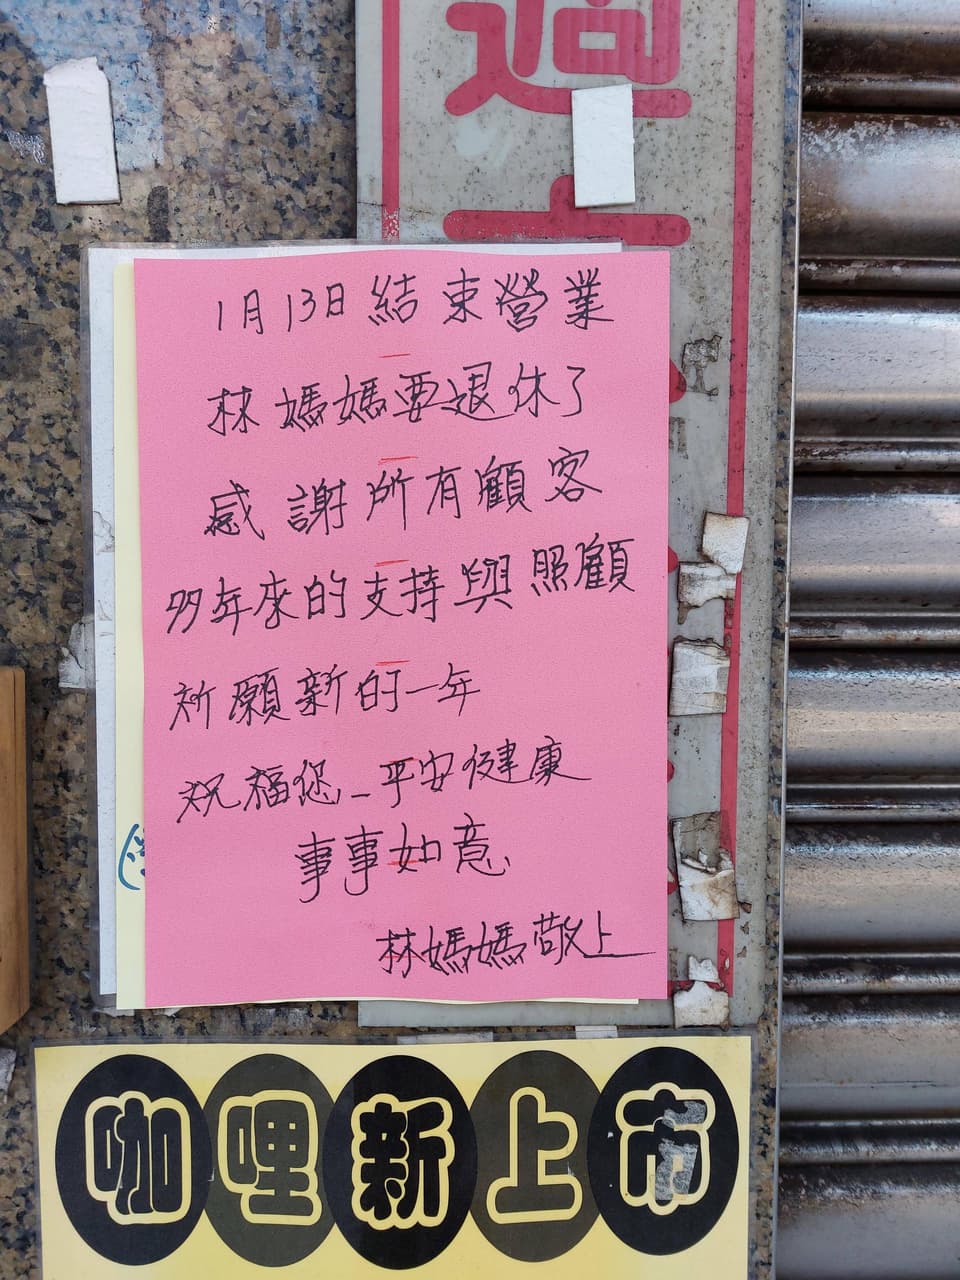 1月13日結束營業
林媽媽要退休了
感謝所有顧客
多年來的支持與照顧
祈願新的一年
祝福您_平安健康
事事如意
林媽媽敬上
咖哩新上市